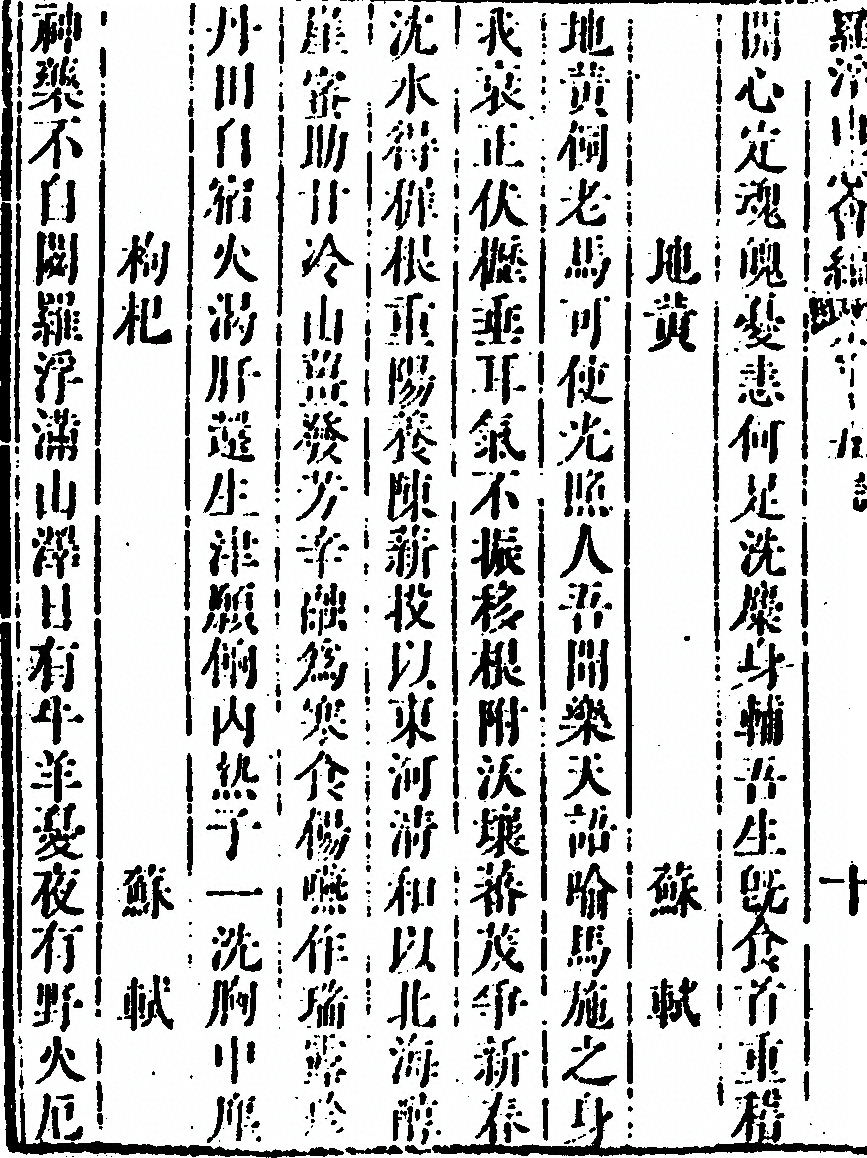 羅浮山志會編
十
開心定魂魄憂恚何足洗糜身輔吾生既食首重稽
地黃　蘇軾
地黃飼老馬可使光照人吾聞樂天語喻馬施之身
我衰正伏櫪垂耳氣不振移根附沃壤蕃茂爭新春
沈水得穉根重陽養陳薪投以東河清和以北海醇
崖蜜助甘冷山薑發芳辛融爲寒食餳嚥作瑞露珍
丹田自宿火渴肝還生津願餉內熱子一洗胸中塵
枸杞　蘇軾
神藥不自閟羅浮滿山澤日有牛羊憂夜有野火厄